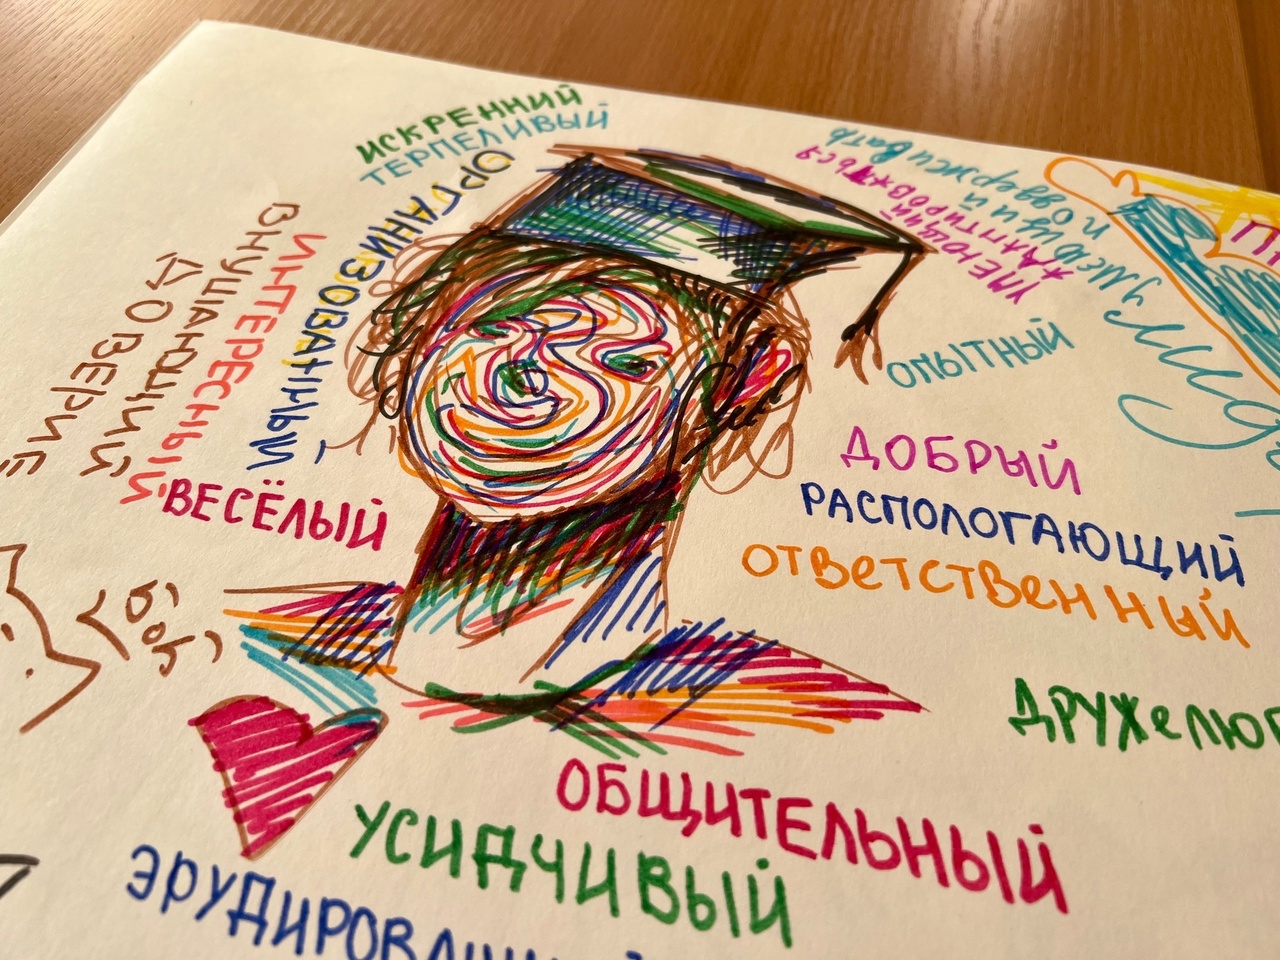 ИСКРЕННИЙ
ТЕРПЕЛИВЫЙ
ОРГАНИЗОВАННЫЙ
ИНТЕРЕСНЫЙ
ВНУШАЮЩИЙ
ДОВЕРИЕ
ВЕСЁЛЫЙ
УМЕЮЩИЙ
АДАПТИРОВАТЬСЯ
УМЕЮЩИЙ
поддерживать
ОПЫТНЫЙ
ДОБРЫЙ
РАСПОЛОГАЮЩИЙ
ОТВеТСТВеННЫЙ
ДРУЖеЛЮБ
ОБЩИТЕЛЬНЫЙ
УСИДЧИВЫЙ
ЭРУДИРОВАННЫЙ